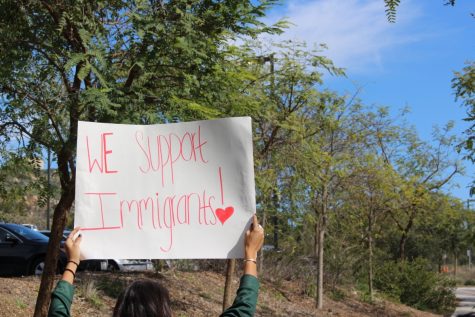 WE Support
Immigrants!